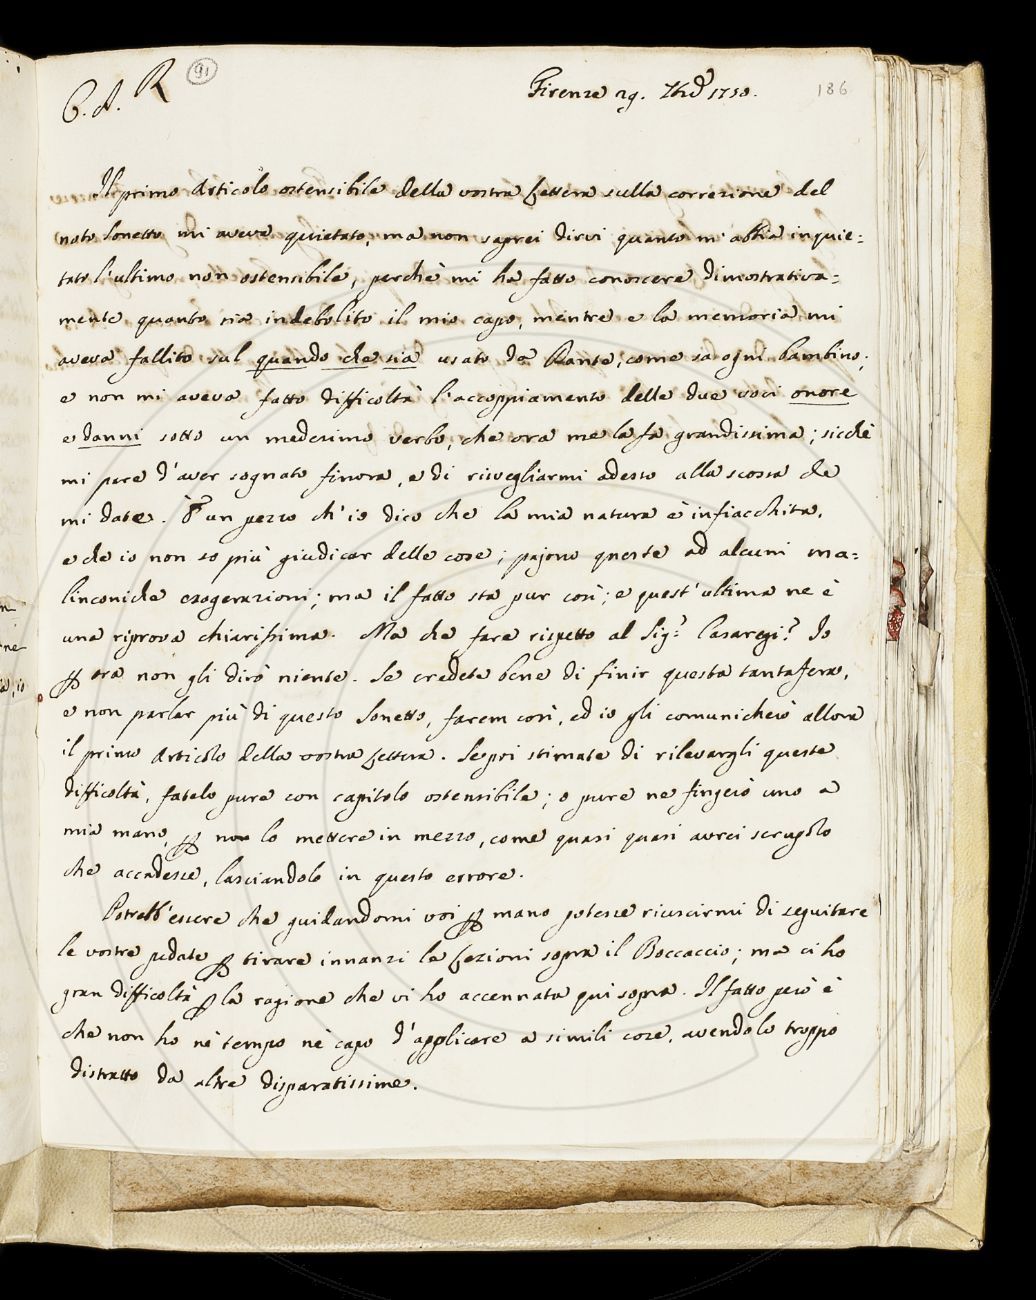 C. A. R 91
Firenze 29. Xbre 1750. 186
Il primo Articolo ostensibile della vostra Lettera sulla correzione del
noto Sonetto mi aveva quietato, ma non saprei dirvi quanto m'abbia inquie=
tato l'ultimo non ostensibile, perchè mi ha fatto conoscere dimostrativa=
mente quanto sia indebolito il mio capo, mentre e la memoria mi
aveva fallito sul quando che sia usato da Dante, come sa ogni bambino;
e non mi aveva fatto difficoltà l'accoppiamento delle due voci onore
e danni sotto un medesimo verbo, che ora me la fa grandissima; sicchè
mi pare d'aver sognato finora, e di risvegliarmi adesso alla scossa che
mi date. È un pezzo ch'io dico che la mia natura è infiacchita,
e che io non so più giudicar delle cose; pajono queste ad alcuni ma=
linconiche esagerazioni; ma il fatto sta pur così; e quest'ultima ne è
una riprova chiarissima. Ma che fare rispetto al Sig.r Casaregi? Io
p ora non gli dirò niente. Se credete bene di finir questa tantafera,
e non parlar più di questo Sonetto, farem così, ed io gli comunicherò allora
il primo Articolo della vostra Lettera. Se poi stimate di rilevargli queste
difficoltà, fatelo pure con capitolo ostensibile; o pure ne fingerò uno a
mia mano, p non lo mettere in mezzo, come quasi quasi avrei scrupolo
che accadesse, lasciandolo in questo errore.
Potrebb'essere che guidandomi voi p mano potesse riuscirmi di seguitare
le vostre pedate p tirare innanzi le Lezioni sopra il Boccaccio; ma ci ho
gran difficoltà p la ragione che vi ho accennata qui sopra. Il fatto però è
che non ho nè tempo nè capo d'applicare a simili cose, avendolo troppo
distratto da altre disparatissime.